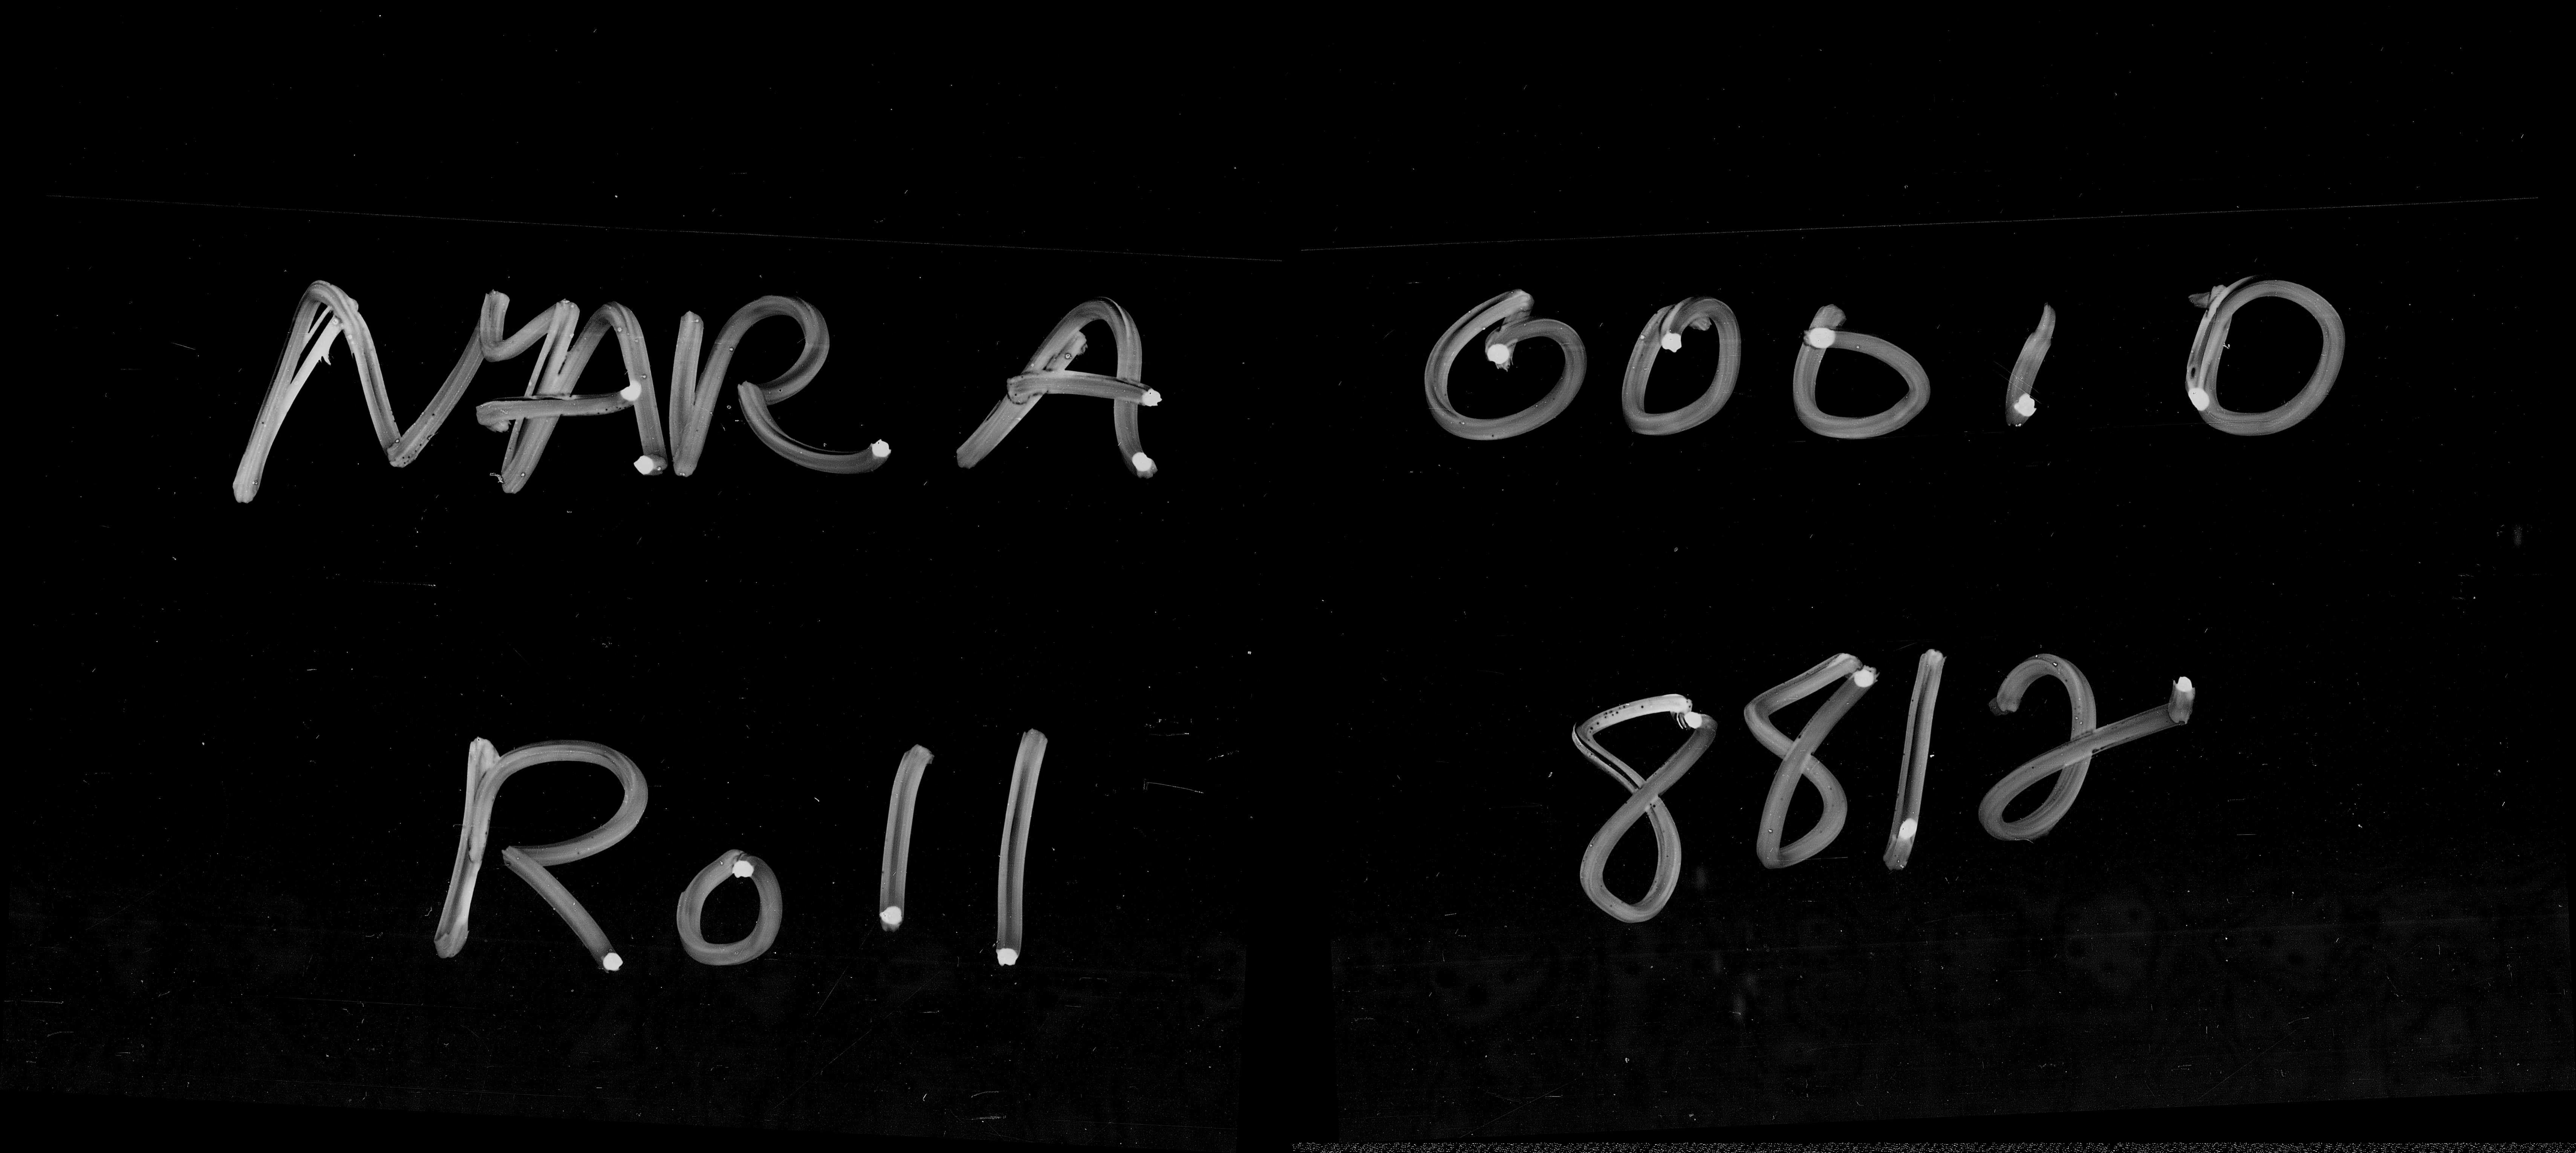 NARA 00010
Roll 8812